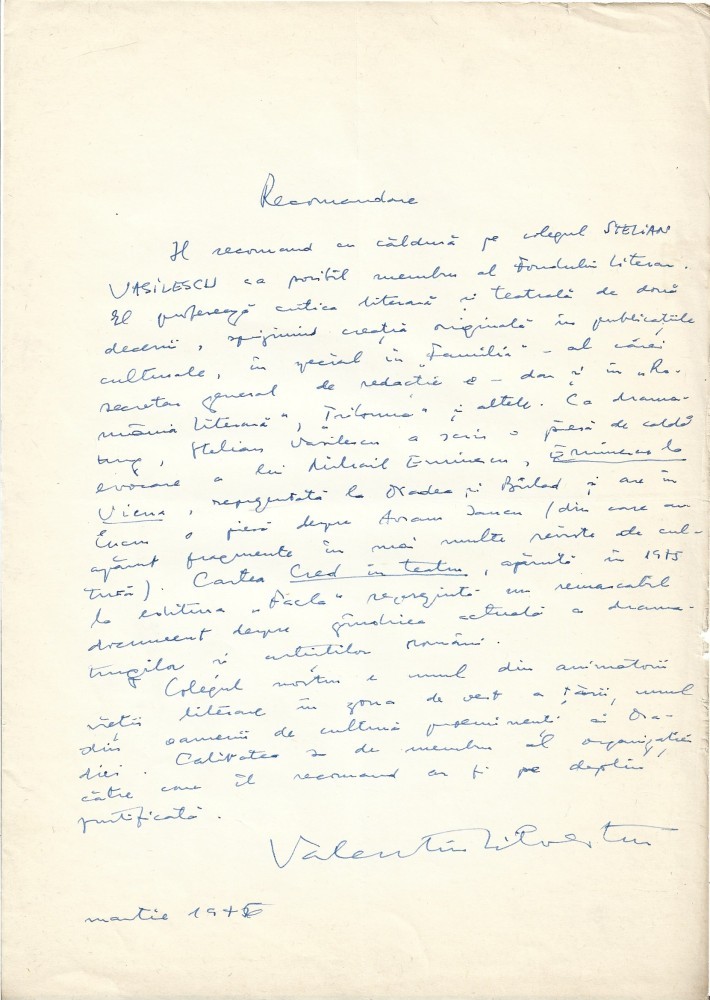 Recomandare
Îl recomand cu căldură pe colegul STELIAN
VASILESCU ca posibil membru al Fondului literar.
El profesează critica literară și teatrală de două
decenii, sprijinind creația originală în publicațiile
culturale, în special în "Familia" – al cărei
secretar general de redacție e – dar și în "Ro-
mânia literară", "Tribuna" și altele. Ca drama-
turg, Stelian Vasilescu a scris o piesă de caldă
evocare a lui Mihail Eminescu, Eminescu la
Viena, reprezentată la Oradea și Bîrlad și are în
lucru o piesă despre Avram Iancu (din care au
apărut fragmente în mai multe reviste de cul-
tură). Cartea Cred în teatru, apărută în 1975
la editura "Facla" reprezintă un remarcabil
document despre gîndirea actuală a drama-
turgilor și artiștilor români.
Colegul nostru e unul din animatorii
vieții literare în zona de vest a țării, unul
din oamenii de cultură proeminenți ai Ora-
diei. Calitatea sa de membru al organizației
către care îl recomand ar fi pe deplin
justificată.
Valentin Silvestru
martie 1976